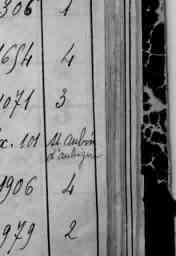 306 1
1654 4
1071 3
x. 101 St Aubin
d'aubigné
1906 4
979 2